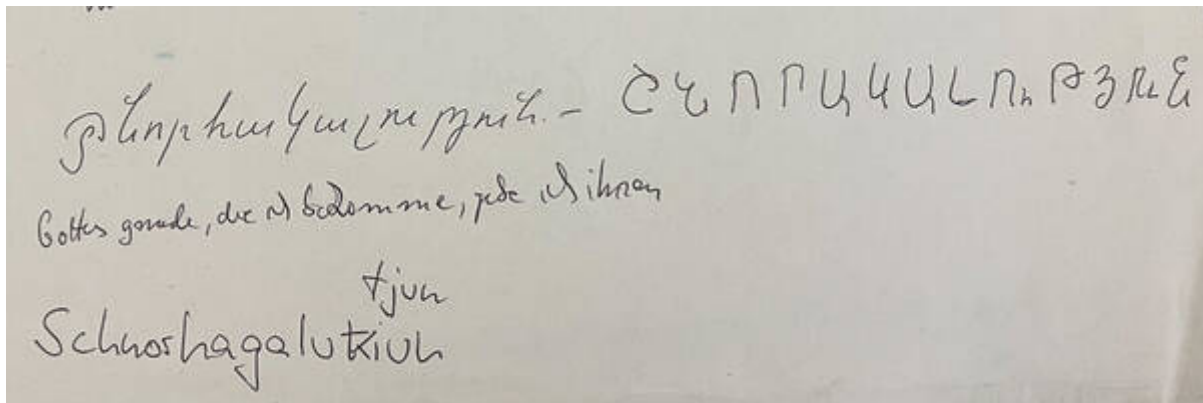 շնորհակալություն.- ՇՆՈՐԱԿԱԼՈւԹՅՈւՆ
Gottes gnade, die ich bekomme, gebe ich ihnen
tjun
Schnorhagalutiun